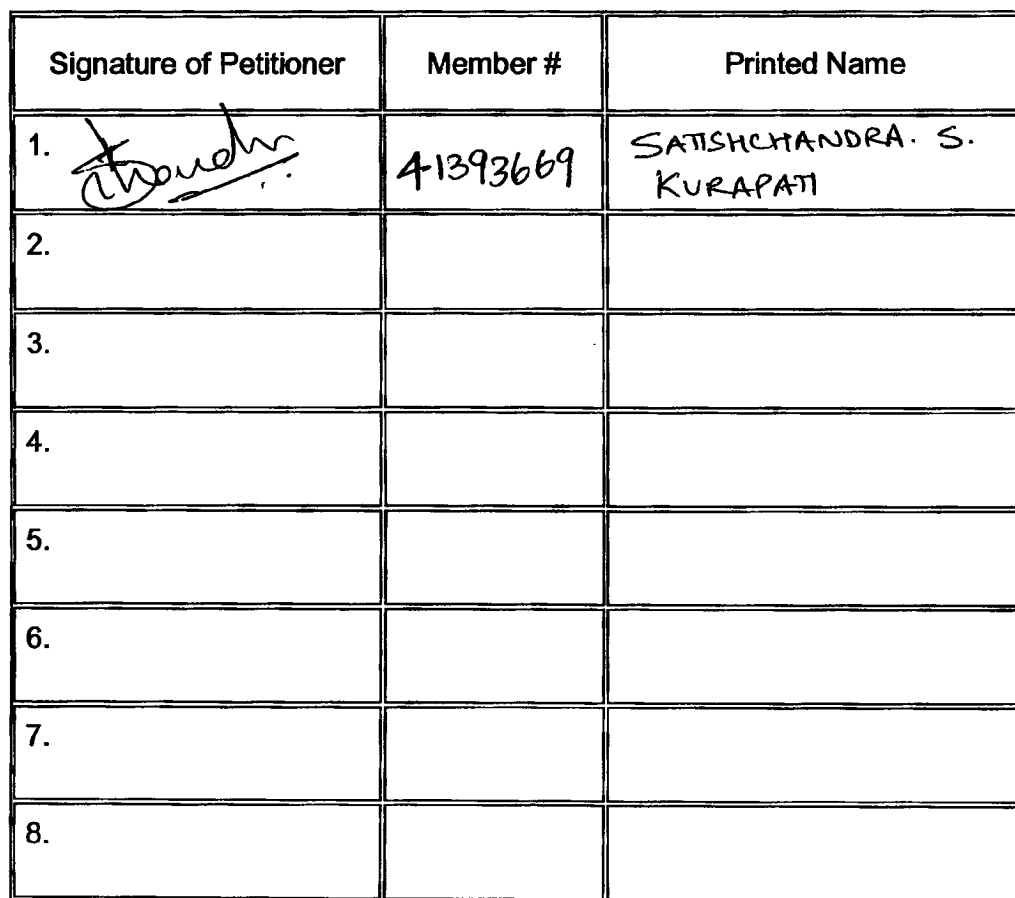 Signature of Petitioner Member # Printed Name
1. 41393669 SATISHCHANDRA. S.
KURAPATI
2.
3.
4.
5.
6.
7.
8.